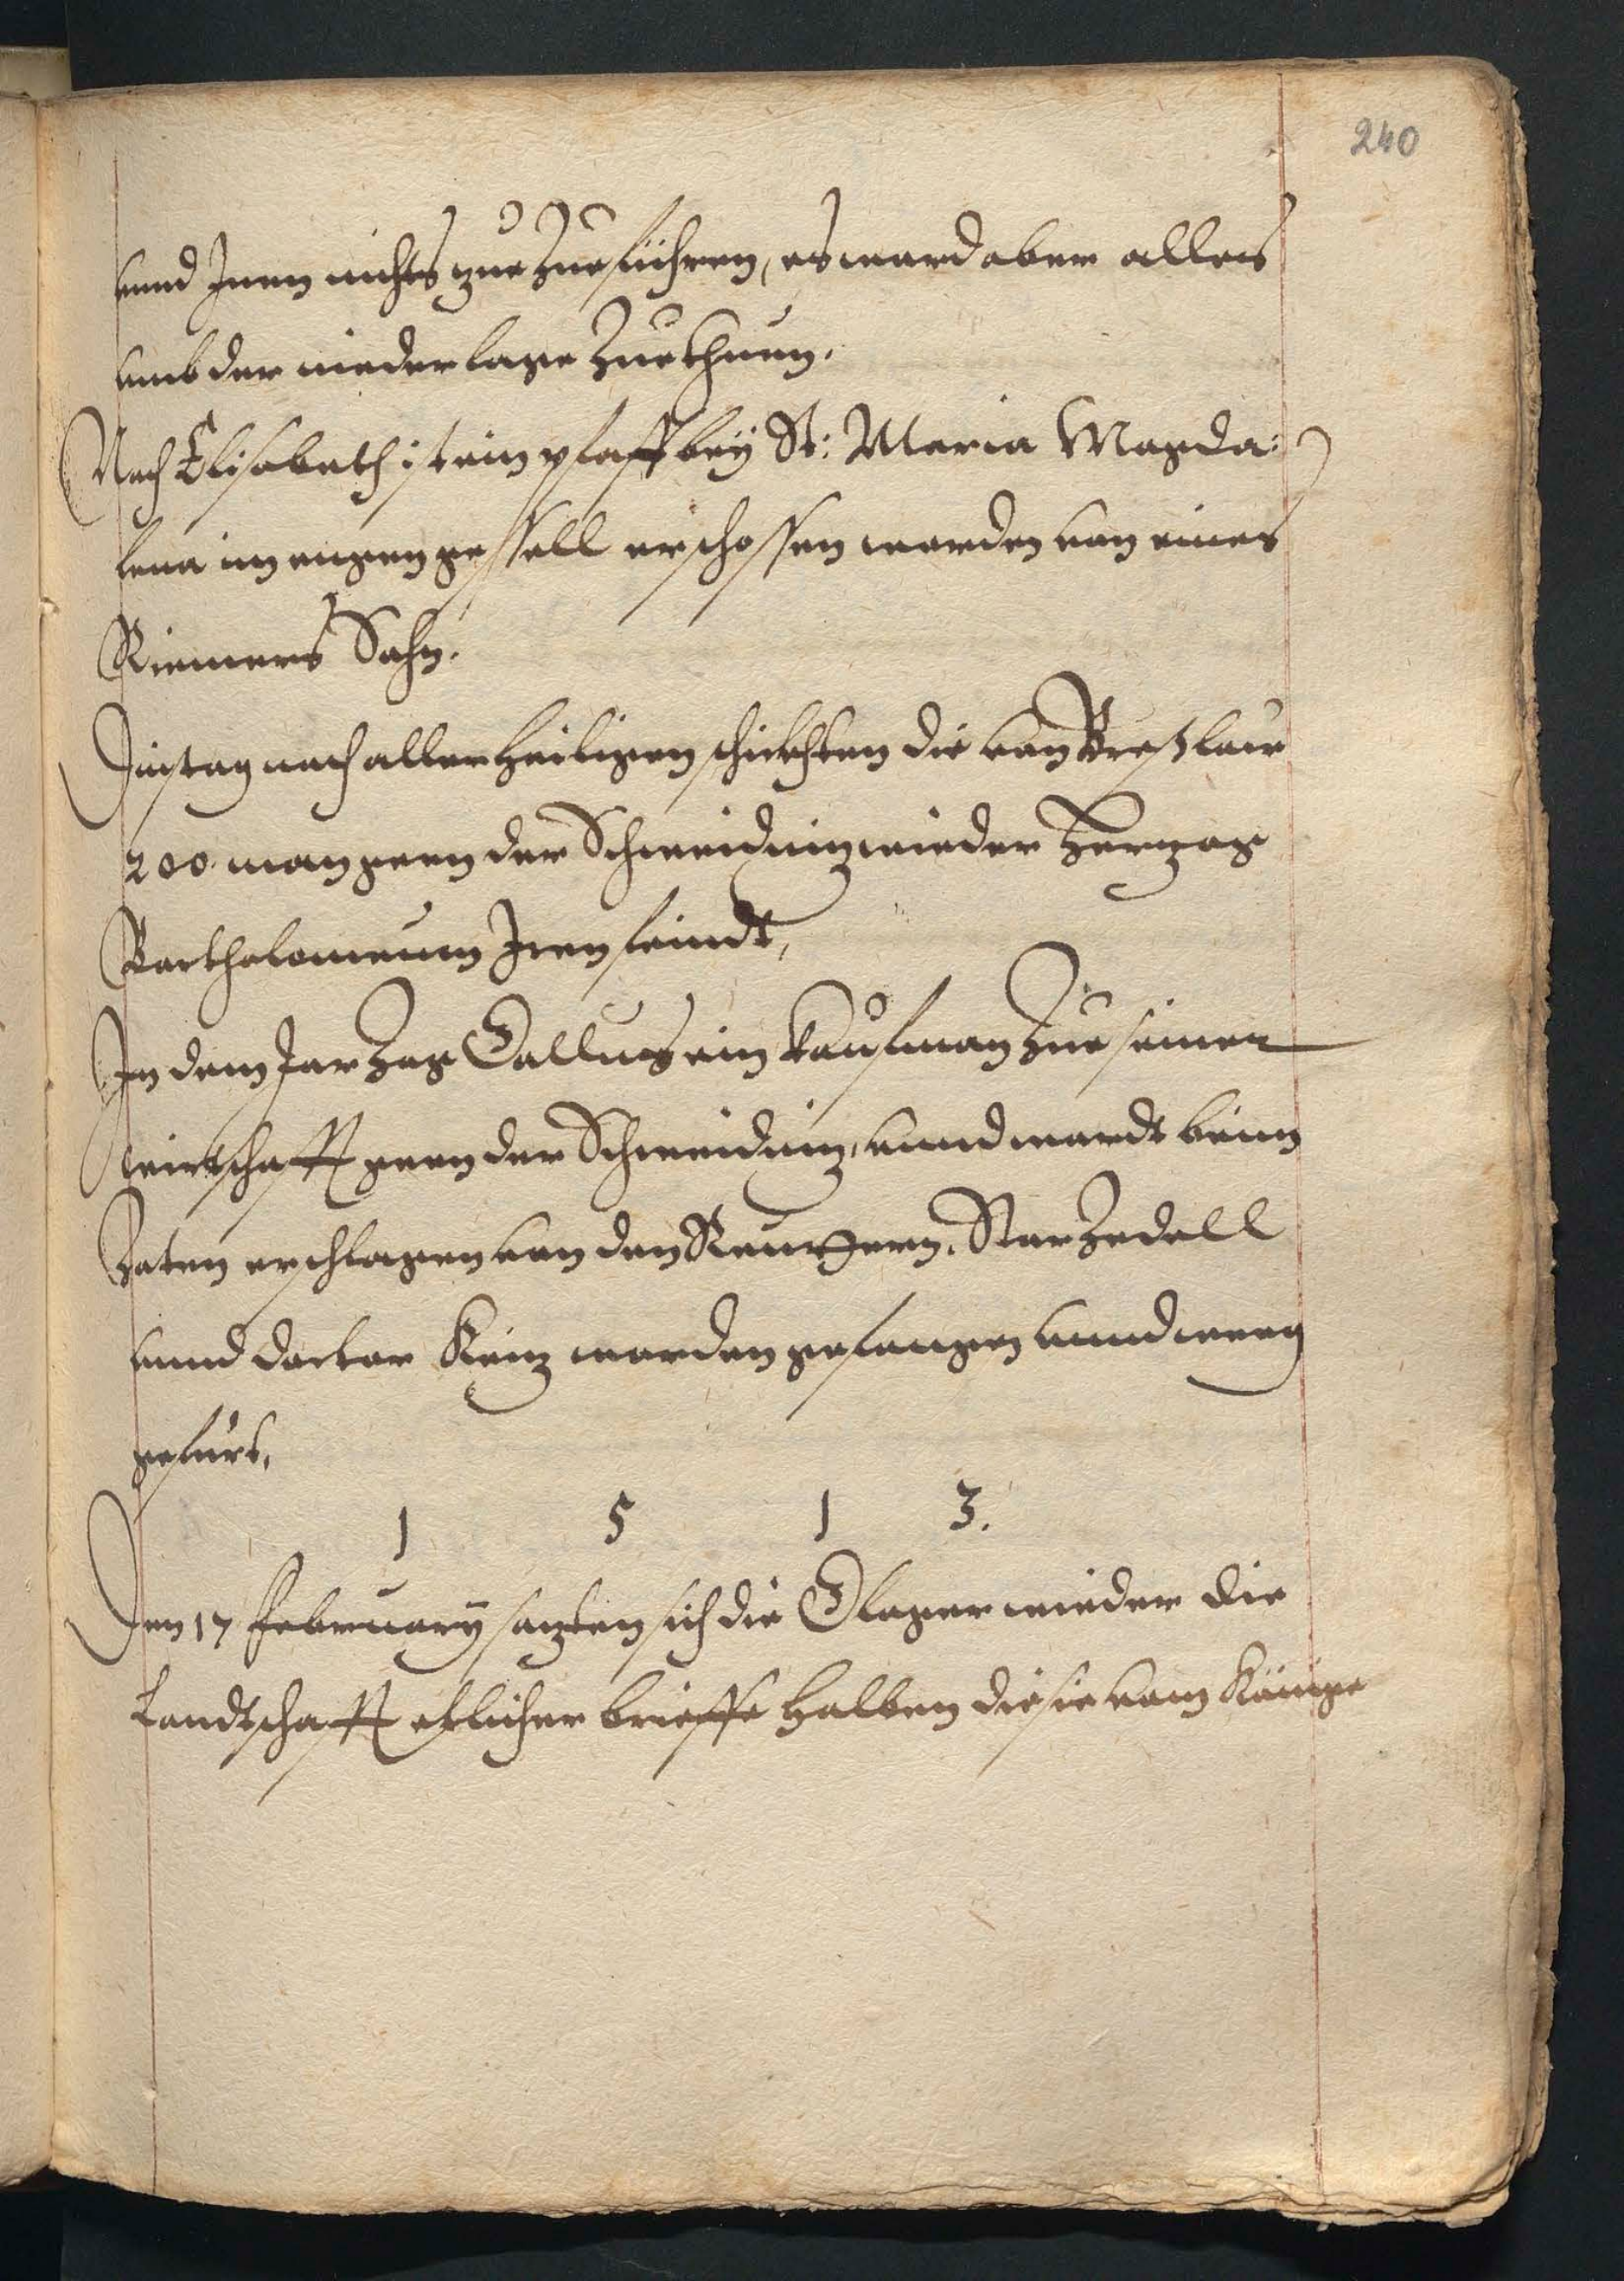 240
unnd Jnen nichts zue Zueführen, es ward aber alles
umb der niederlage Zuethuen.
Nach Elisabeth ist ein pfaff bey St: Maria Magda:
lena im engen gessell erschossen worden von eines
Riemers Sohn.
Dinstag nach aller Heiligen schickten die von Breßlaw
200. man geen der Schweidnitz wieder Herzog
Bartholomeum Jren feindt,
In dem Jar Zog Gallus ein kaufman Zue seiner
wirtschafft geen der Schweidnitz, unnd wardt beim
Zoten erschlagen von den Reuttern. Starzedell
unnd doctor Reinz worden gefangen unnd weeg
gefürt.
1 5 1 3.
Den 17 February sazten sich die Olager wieder die
Landtschafft etlicher brieffe halben die sie vom Könige